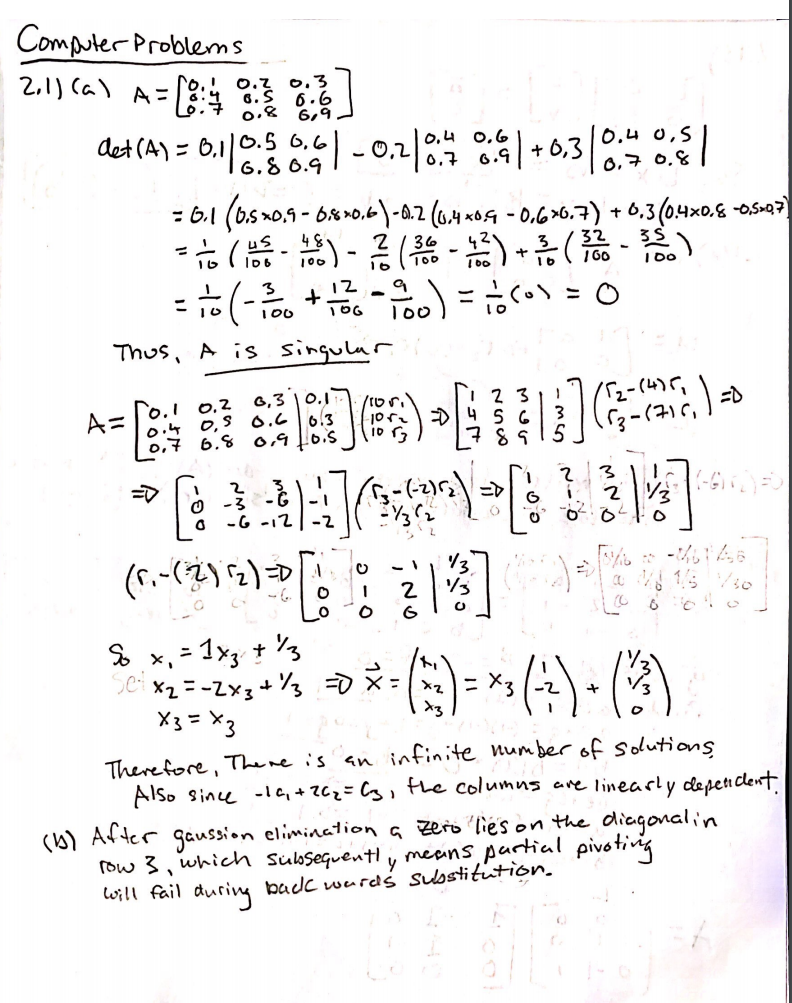 Computer Problems
2.1) (a) A = [0.1 0.2 0.3; 0.4 0.5 0.6; 0.7 0.8 0.9]
det(A) = 0.1 |0.5 0.6; 0.8 0.9| - 0.2 |0.4 0.6; 0.7 0.9| + 0.3 |0.4 0.5; 0.7 0.8|
= 0.1 (0.5×0.9 - 0.8×0.6) - 0.2 (0.4×0.9 - 0.6×0.7) + 0.3 (0.4×0.8 - 0.5×0.7)
= 1/10 (45/100 - 48/100) - 2/10 (36/100 - 42/100) + 3/10 (32/100 - 35/100)
= 1/10 (-3/100 + 12/100 - 9/100) = 1/10 (0) = 0
Thus, A is singular
A = [0.1 0.2 0.3 | 0.1; 0.4 0.5 0.6 | 0.3; 0.7 0.8 0.9 | 0.5] (10 r₁; 10 r₂; 10 r₃) ⇒ [1 2 3 | 1; 4 5 6 | 3; 7 8 9 | 5] (r₂-(4)r₁; r₃-(7)r₁) ⇒
⇒ [1 2 3 | 1; 0 -3 -6 | -1; 0 -6 -12 | -2] (r₃-(-2)r₂; -1/3 r₂) ⇒ [1 2 3 | 1; 0 1 2 | 1/3; 0 0 0 | 0]
(r₁-(2)r₂) ⇒ [1 0 -1 | 1/3; 0 1 2 | 1/3; 0 0 0 | 0]
So x₁ = 1x₃ + 1/3
x₂ = -2x₃ + 1/3 ⇒ x⃗ = (x₁; x₂; x₃) = x₃ (1; -2; 1) + (1/3; 1/3; 0)
x₃ = x₃
Therefore, There is an infinite number of solutions
Also since -1c₁ + 2c₂ = c₃, the columns are linearly dependent.
(b) After gaussion elimination a zero lies on the diagonal in
row 3, which subsequently means partial pivoting
will fail during backwards substitution.